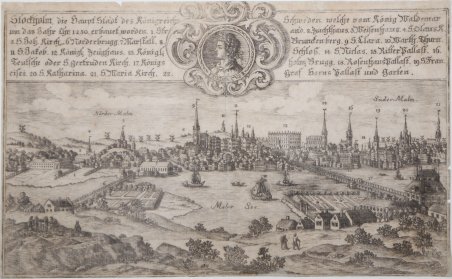 Stockholm die Haupt Stadt des Königreich Schweden welche vom König Waldemar
um das Jahr Chr 1250 erbauet worden. 1. 2. Zuchthaus. 3. Weisenhaus. 4. S. Olaus K.
5. S. Joh. Kirch. 6. Norderbrugg. 7. Marstall. 8. Brunckenberg. 9. S. Clara. 10. Thurn.
11. S. Jakob. 12. Königl. Zeughaus. 13. Königl. Schloß. 14. S. Niclas. 15. Ritter Pallast. 16.
Teutsche oder S. Gertruden Kirch. 17. Königs holm Brugg. 18. Rosenhan Pallast. 19. Fran
cisci. 20. S. Katharina. 21. S. Maria Kirch. 22. Graf Pallast und Garten.
Norder Malm
Süder Malm
Maler See